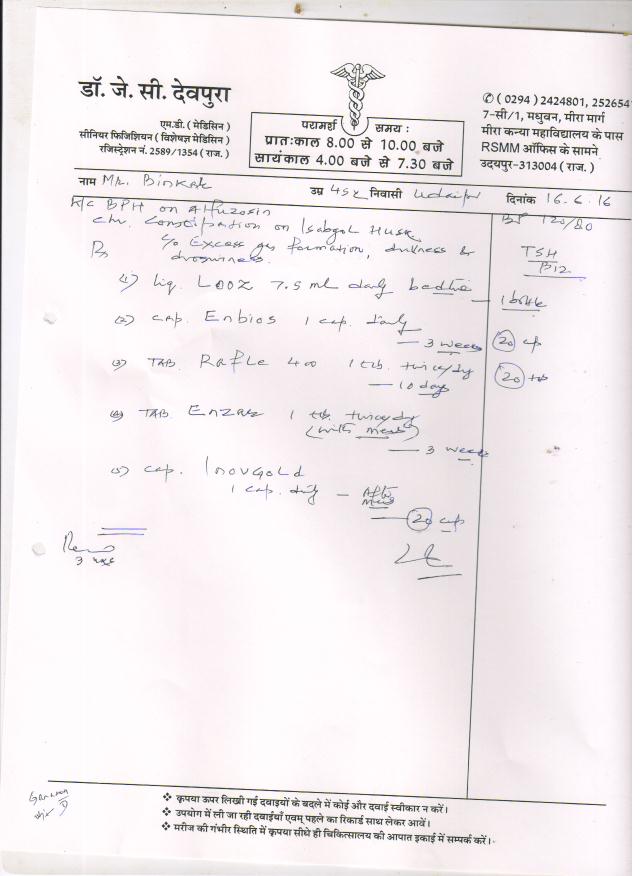 डॉ. जे. सी. देवपुरा
एम.डी. ( मेडिसिन )
सीनियर फिजिशियन ( विशेषज्ञ मेडिसिन )
रजिस्ट्रेशन नं. 2589/1354 ( राज. )
परामर्श समय :
प्रातःकाल 8.00 से 10.00 बजे
सायंकाल 4.00 बजे से 7.30 बजे
✆ ( 0294 ) 2424801, 252654
7-सी/1, मधुबन, मीरा मार्ग
मीरा कन्या महाविद्यालय के पास
RSMM ऑफिस के सामने
उदयपुर-313004 ( राज. )
नाम Mr. उम्र 45y निवासी Udaipur दिनांक 16.6.16
K/c BPH on Alfuzosin BP 120/80
Chr. Constipation on Isabgol Husk
c/o Excess gas formation, &
drowsiness. TSH
B12
Rx
(1) Liq. LOOZ 7.5 ml daily bedtime — 1 bottle
(2) Cap. Enbios 1 cap. daily
— 3 weeks (20) cap
(3) TAB. Rafle 400 1 tab. twice/day
— 10 days (20) tab
(4) TAB. Enzar 1 tab. twice/day
(with meals)
— 3 weeks
(5) Cap. InovGold
1 cap. daily — After
Meals
— (20) cap
3
❖ कृपया ऊपर लिखी गई दवाइयों के बदले में कोई और दवाई स्वीकार न करें।
❖ उपयोग में ली जा रही दवाईयाँ एवम् पहले का रिकार्ड साथ लेकर आवें।
❖ मरीज की गंभीर स्थिति में कृपया सीधे ही चिकित्सालय की आपात इकाई में सम्पर्क करें।